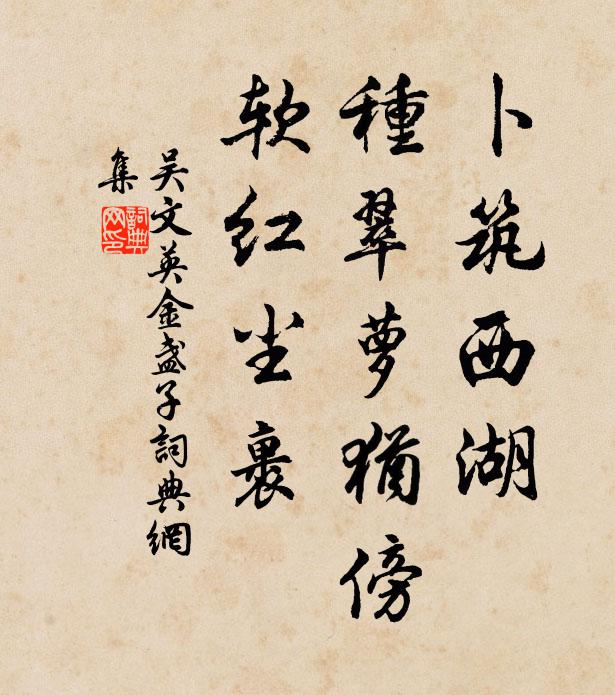 卜筑西湖
種翠萝猶傍
软红尘裏
吴文英金盏子詞典網
集
詞典网印